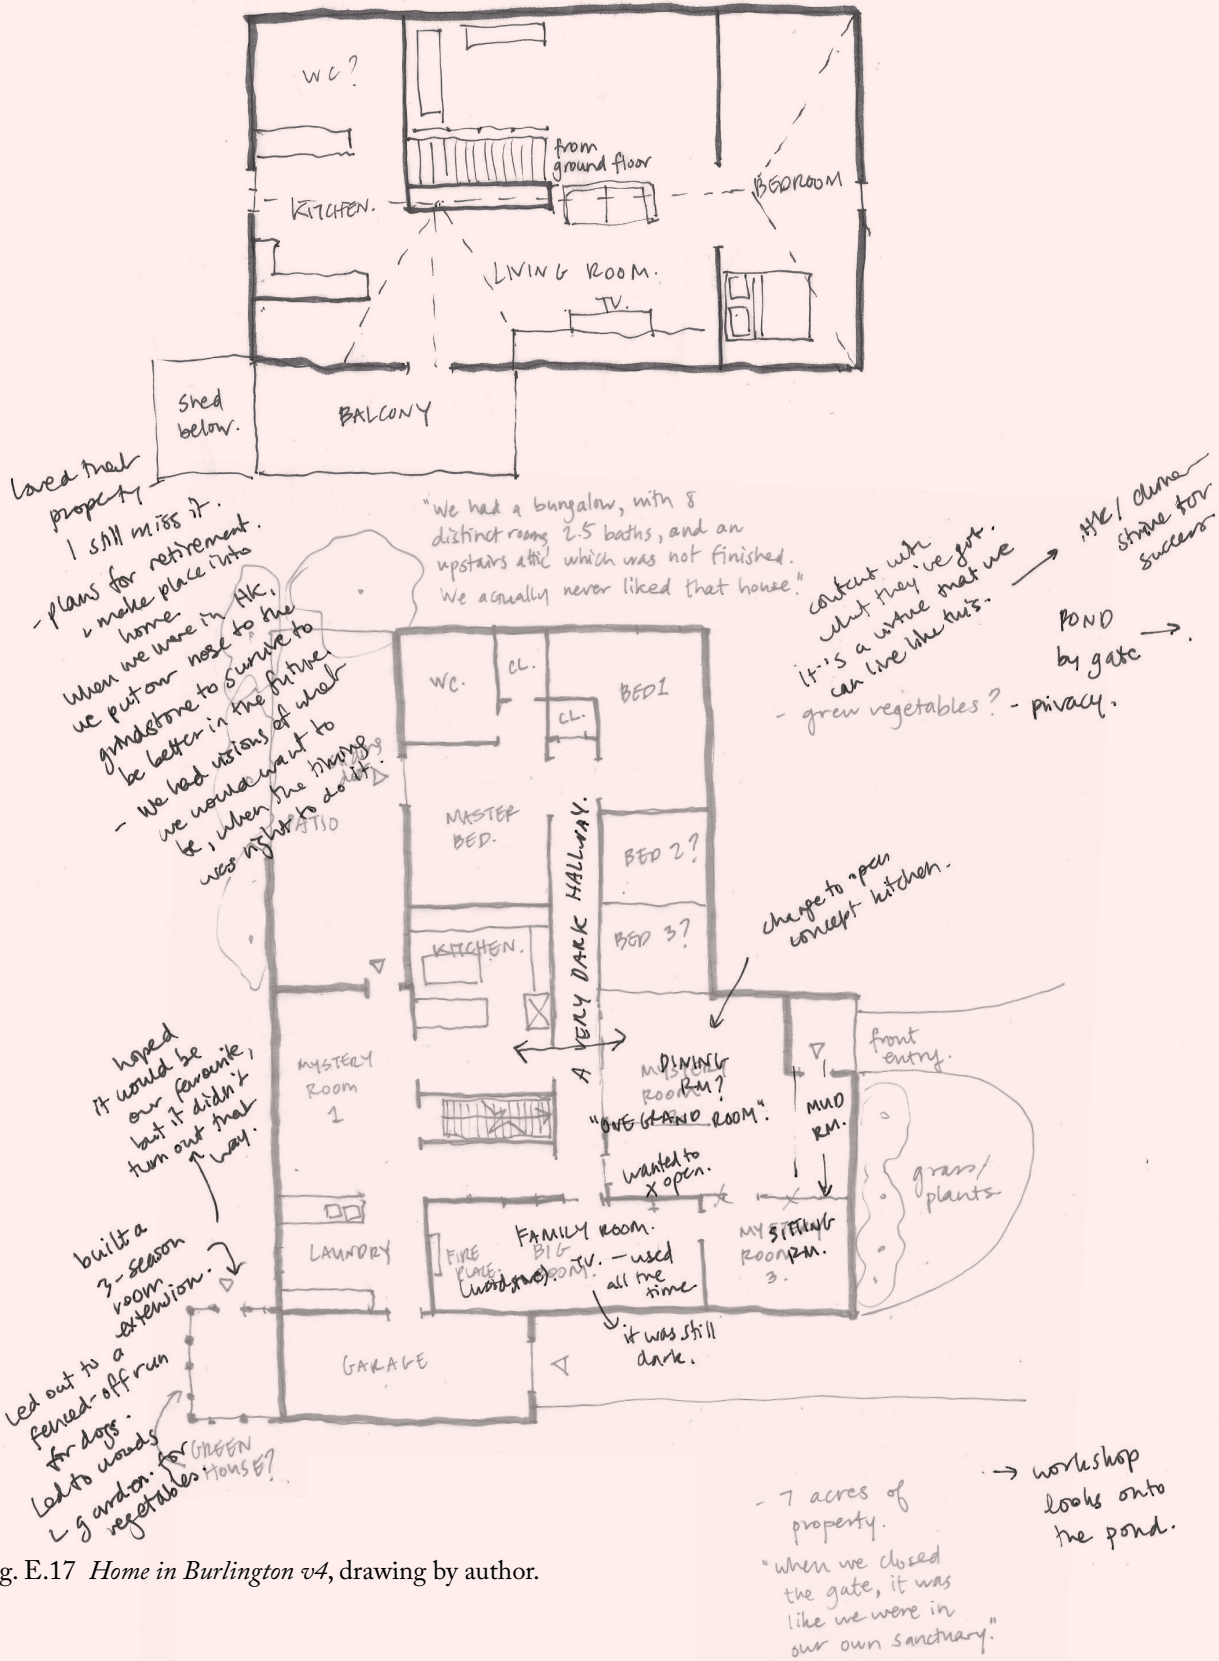 WC?
from
ground floor
KITCHEN.
BEDROOM
LIVING ROOM.
TV.
shed
below.
BALCONY
loved that
property
I still miss it.
- plans for retirement.
make place into
home.
when we were in HK,
we put our nose to the
grindstone to survive to
be better in the future.
- we had visions of what
we would want to
be, when the timing
was right to do it.
PATIO
"We had a bungalow, with 8
distinct rooms, 2.5 baths, and an
upstairs attic which was not finished.
We actually never liked that house."
content with
what they've got.
it's a virtue that we
can live like this.
HK/
strive for
success
POND
by gate
- grew vegetables? - privacy.
WC.
CL.
CL.
BED 1
MASTER
BED.
A VERY DARK HALLWAY.
BED 2?
BED 3?
KITCHEN.
change to open
concept kitchen.
MYSTERY
ROOM
1
DINING
RM?
"ONE GRAND ROOM".
MYSTERY
ROOM
front
entry.
MUD
RM.
wanted to
open.
grass/
plants
hoped
it would be
our favourite,
but it didn't
turn out that
way.
built a
3-season
room
extension.
LAUNDRY
FAMILY ROOM.
TV. - used
all the
time
(woodstove).
FIRE
PLACE.
BIG
ROOM.
SITTING
RM.
MYSTERY
ROOM
3.
it was still
dark.
GARAGE
Led out to a
fenced-off run
for dogs.
Led to woods
garden for
vegetables.
GREEN
HOUSE?
- 7 acres of
property.
"when we closed
the gate, it was
like we were in
our own sanctuary."
workshop
looks onto
the pond.
g. E.17 Home in Burlington v4, drawing by author.